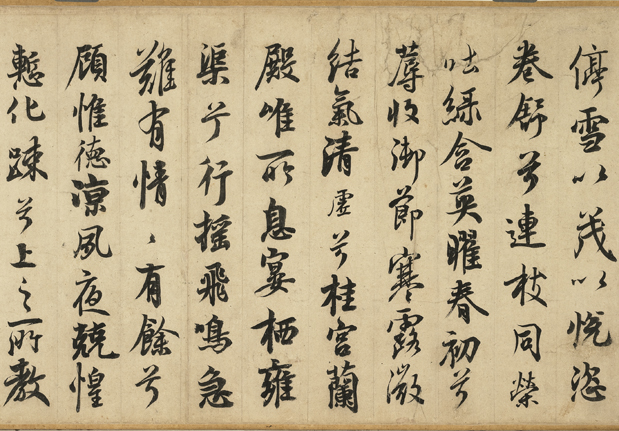 停雪以茂以悅恣
卷舒兮連枝同榮
吐綠含英曜春初兮
蓐收御節寒露微
結氣清虛兮桂宮蘭
殿唯所息宴栖雍
渠兮行搖飛鳴急
難有情〻有餘兮
顧惟德涼夙夜兢惶
慙化踈兮上之所教